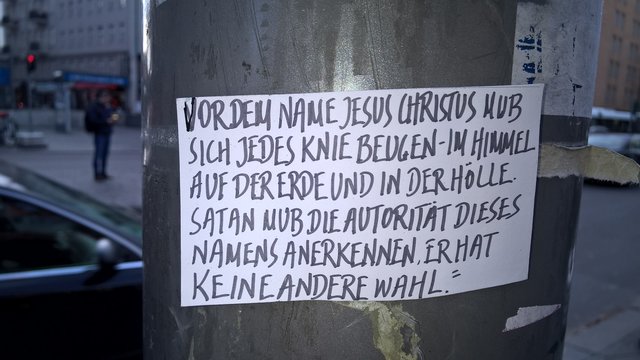 VOR DEM NAME JESUS CHRISTUS MUß
SICH JEDES KNIE BEUGEN - IM HIMMEL
AUF DER ERDE UND IN DER HÖLLE.
SATAN MUß DIE AUTORITÄT DIESES
NAMENS ANERKENNEN. ER HAT
KEINE ANDERE WAHL."